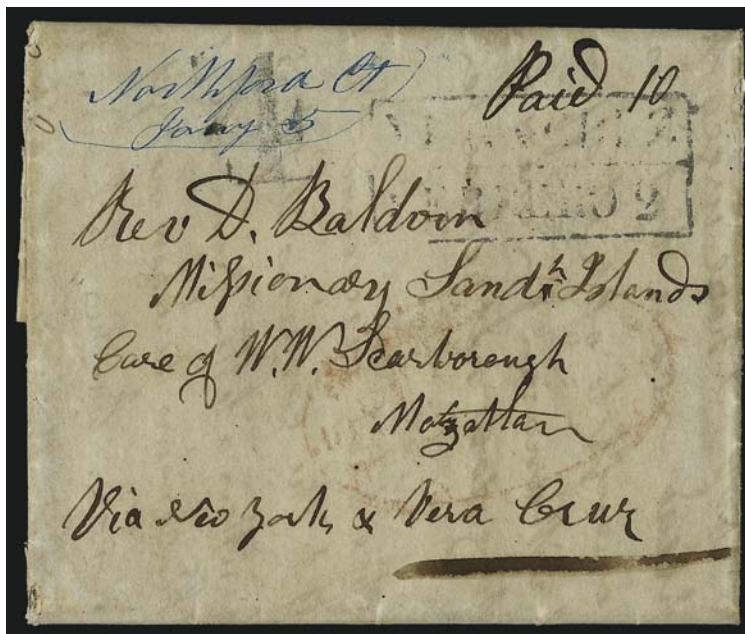 Northford Ct
Jany 5
Paid 10
Rev D. Baldwin
Missionary Sandh Islands
Care of W.W. Scarborough
Mazatlan
Via New York & Vera Cruz